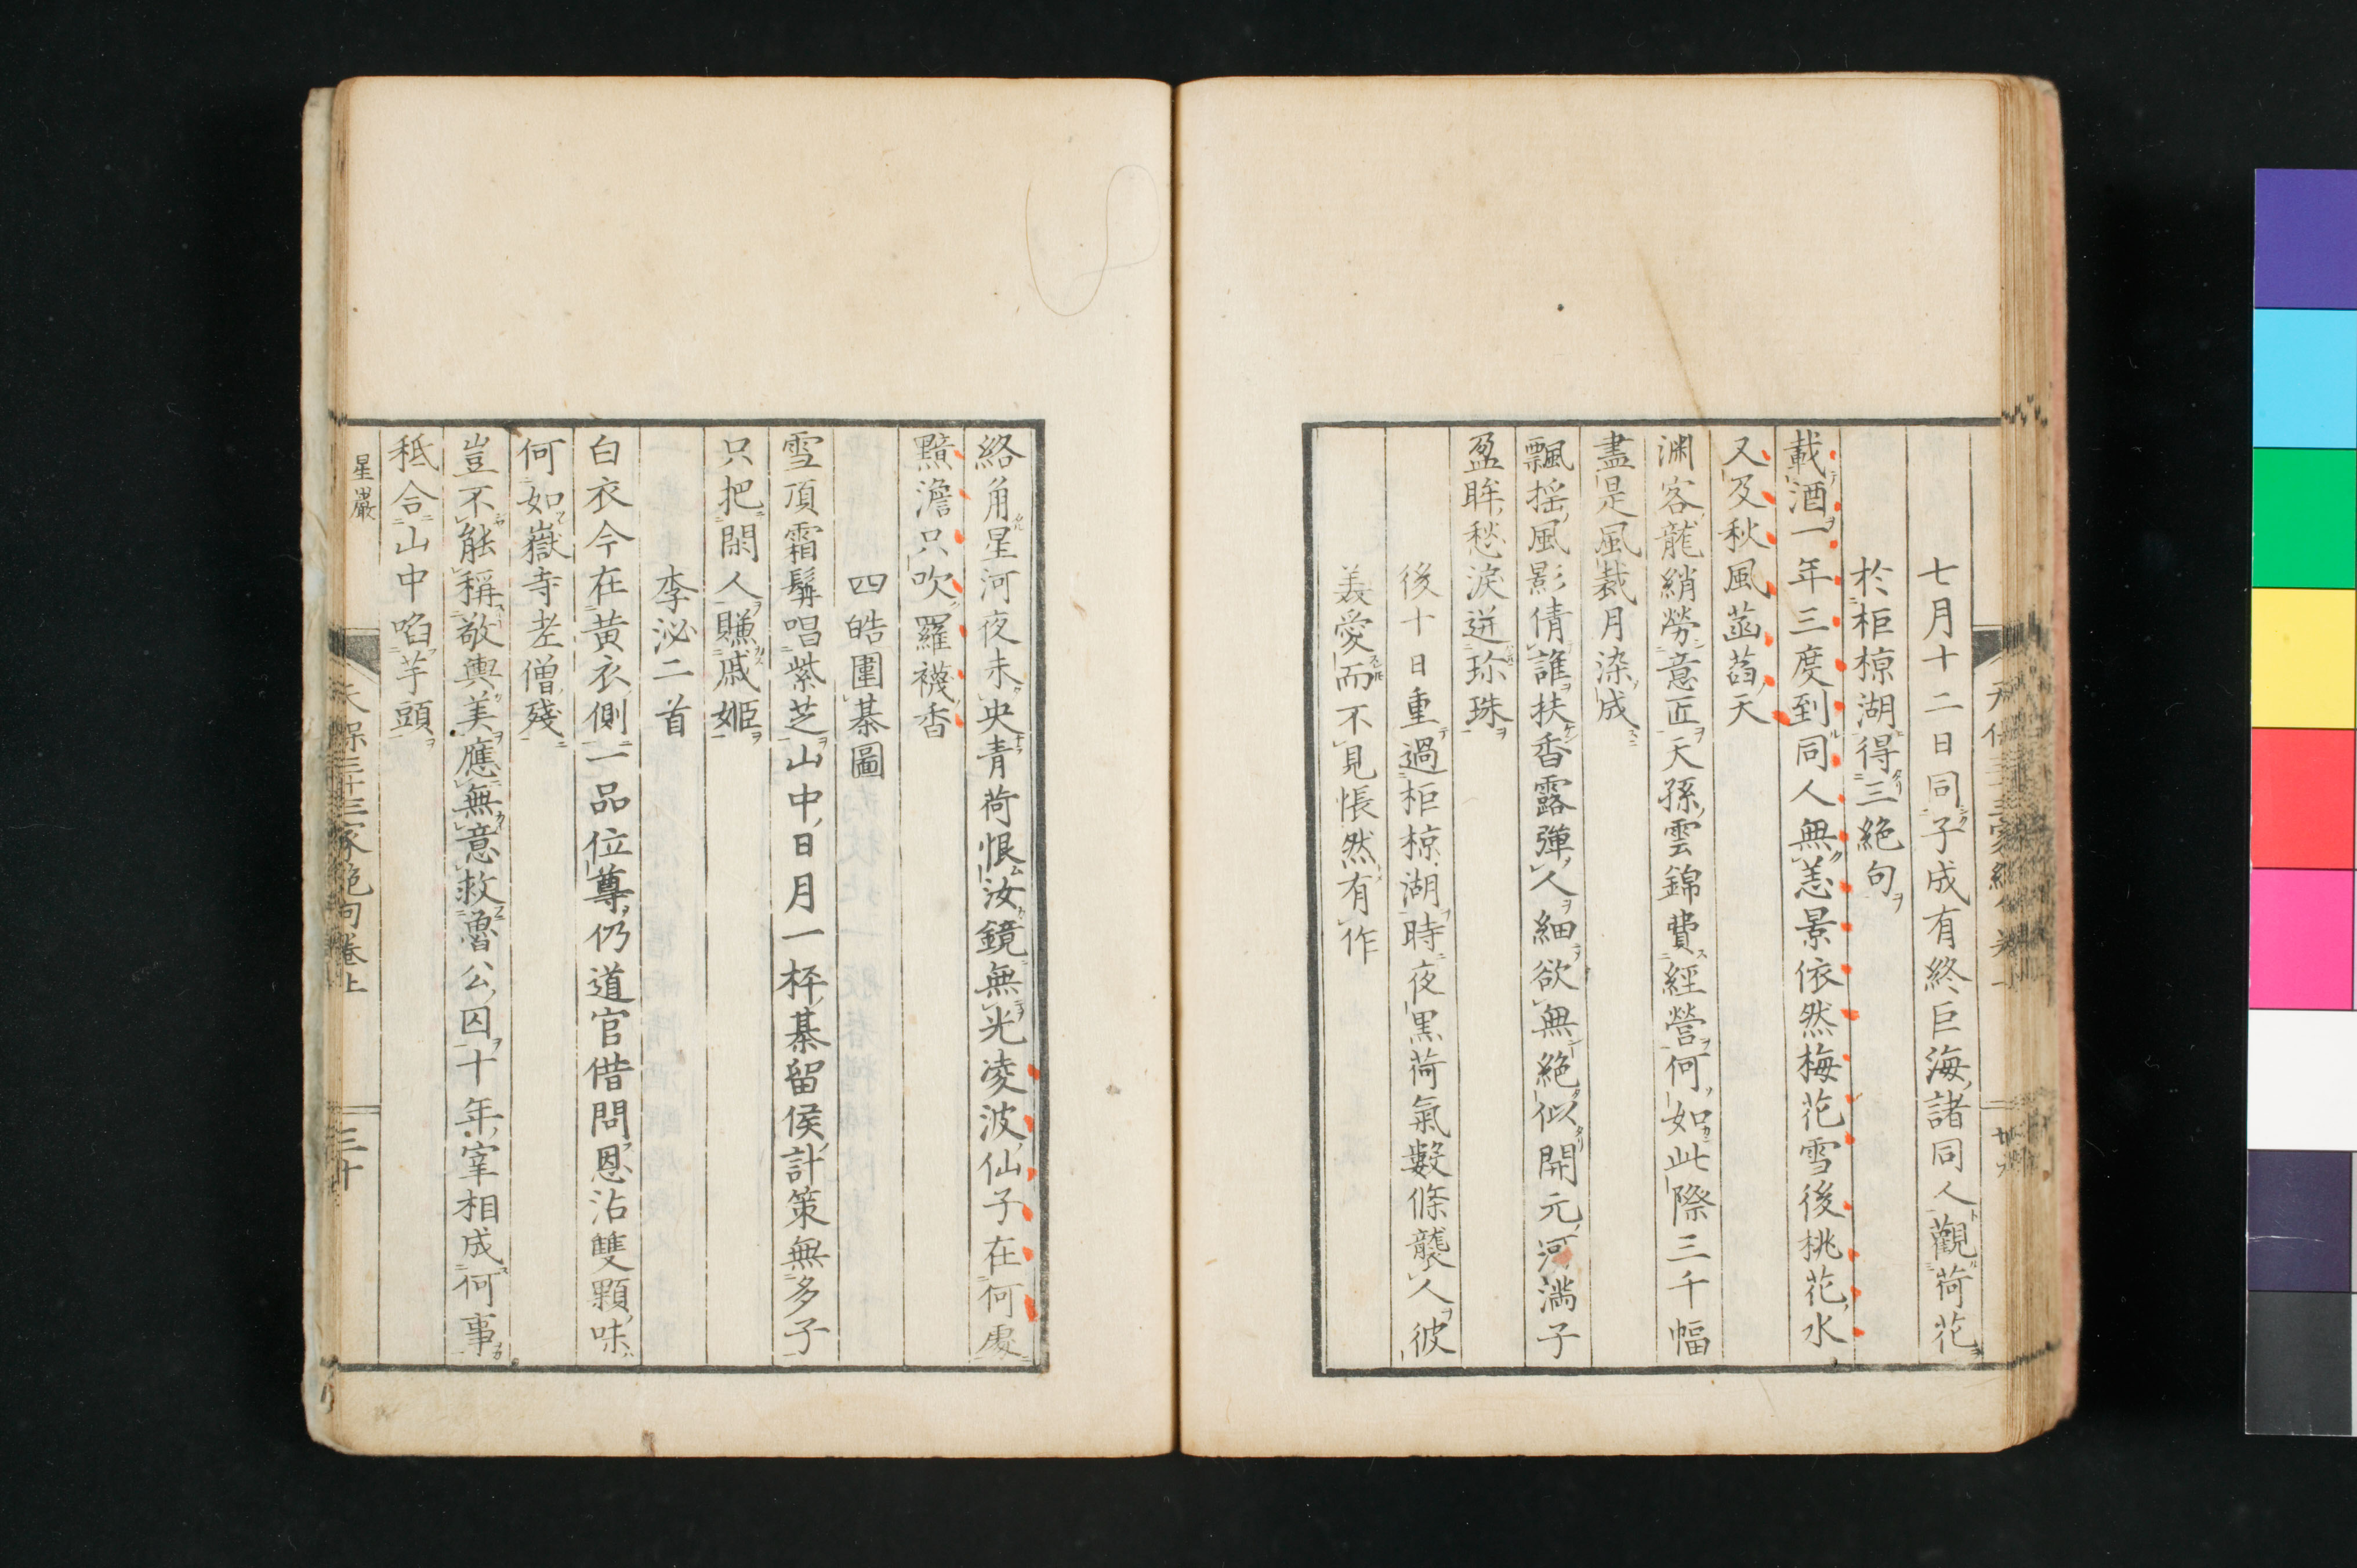 七月十二日同子成有終巨海諸同人觀荷花
於柜椋湖得三絶句
載酒一年三度到同人無恙景依然梅花雪後桃花水
又及秋風菡萏天
渊客龍綃勞意匠天孫雲錦費經營何如此際三千幅
盡是風裁月染成
飄揺風影倩誰扶香露彈人細欲無絶似開元河満子
盈眸愁淚迸珍珠
後十日重過柜椋湖時夜黒荷氣數條襲人彼
美愛而不見悵然有作
絡角星河夜未央青荷恨汝鏡無光凌波仙子在何處
黯澹只吹羅襪香
四皓圍棊圖
雪頂霜髯唱紫芝山中日月一枰棊留侯計策無多子
只把閑人賺戚姬
李泌二首
白衣今在黄衣側一品位尊仍道官借問恩沾雙顆味
何如嶽寺老僧殘
豈不能稱敬輿美應無意救魯公囚十年宰相成何事
秪合山中啗芋頭
星巖
天保三十三家絶句卷上
三十